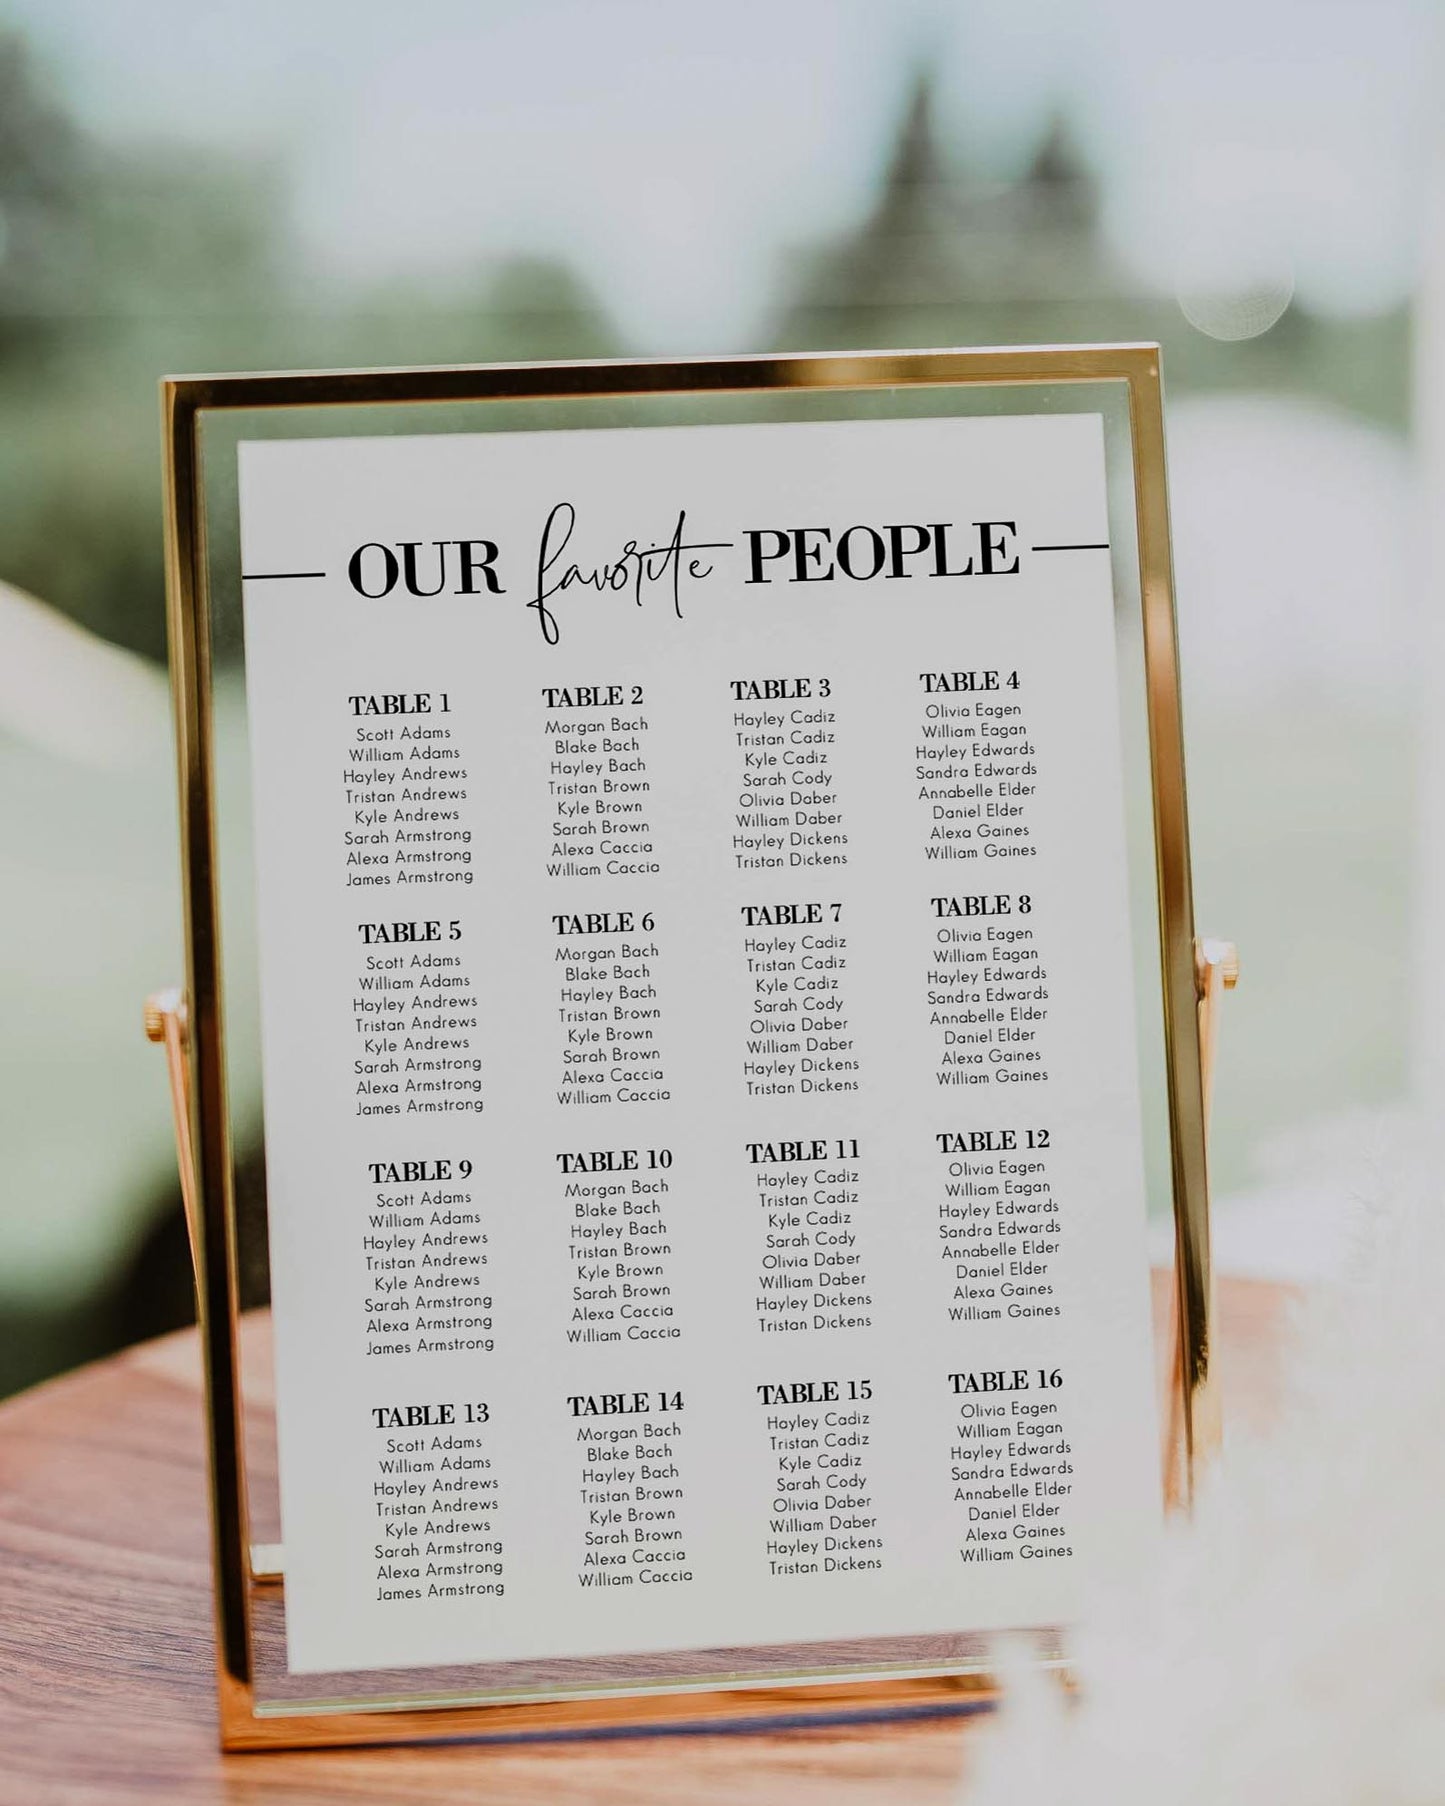 OUR favorite PEOPLE
TABLE 1
Scott Adams
William Adams
Hayley Andrews
Tristan Andrews
Kyle Andrews
Sarah Armstrong
Alexa Armstrong
James Armstrong
TABLE 2
Morgan Bach
Blake Bach
Hayley Bach
Tristan Brown
Kyle Brown
Sarah Brown
Alexa Caccia
William Caccia
TABLE 3
Hayley Cadiz
Tristan Cadiz
Kyle Cadiz
Sarah Cody
Olivia Daber
William Daber
Hayley Dickens
Tristan Dickens
TABLE 4
Olivia Eagen
William Eagan
Hayley Edwards
Sandra Edwards
Annabelle Elder
Daniel Elder
Alexa Gaines
William Gaines
TABLE 5
Scott Adams
William Adams
Hayley Andrews
Tristan Andrews
Kyle Andrews
Sarah Armstrong
Alexa Armstrong
James Armstrong
TABLE 6
Morgan Bach
Blake Bach
Hayley Bach
Tristan Brown
Kyle Brown
Sarah Brown
Alexa Caccia
William Caccia
TABLE 7
Hayley Cadiz
Tristan Cadiz
Kyle Cadiz
Sarah Cody
Olivia Daber
William Daber
Hayley Dickens
Tristan Dickens
TABLE 8
Olivia Eagen
William Eagan
Hayley Edwards
Sandra Edwards
Annabelle Elder
Daniel Elder
Alexa Gaines
William Gaines
TABLE 9
Scott Adams
William Adams
Hayley Andrews
Tristan Andrews
Kyle Andrews
Sarah Armstrong
Alexa Armstrong
James Armstrong
TABLE 10
Morgan Bach
Blake Bach
Hayley Bach
Tristan Brown
Kyle Brown
Sarah Brown
Alexa Caccia
William Caccia
TABLE 11
Hayley Cadiz
Tristan Cadiz
Kyle Cadiz
Sarah Cody
Olivia Daber
William Daber
Hayley Dickens
Tristan Dickens
TABLE 12
Olivia Eagen
William Eagan
Hayley Edwards
Sandra Edwards
Annabelle Elder
Daniel Elder
Alexa Gaines
William Gaines
TABLE 13
Scott Adams
William Adams
Hayley Andrews
Tristan Andrews
Kyle Andrews
Sarah Armstrong
Alexa Armstrong
James Armstrong
TABLE 14
Morgan Bach
Blake Bach
Hayley Bach
Tristan Brown
Kyle Brown
Sarah Brown
Alexa Caccia
William Caccia
TABLE 15
Hayley Cadiz
Tristan Cadiz
Kyle Cadiz
Sarah Cody
Olivia Daber
William Daber
Hayley Dickens
Tristan Dickens
TABLE 16
Olivia Eagen
William Eagan
Hayley Edwards
Sandra Edwards
Annabelle Elder
Daniel Elder
Alexa Gaines
William Gaines